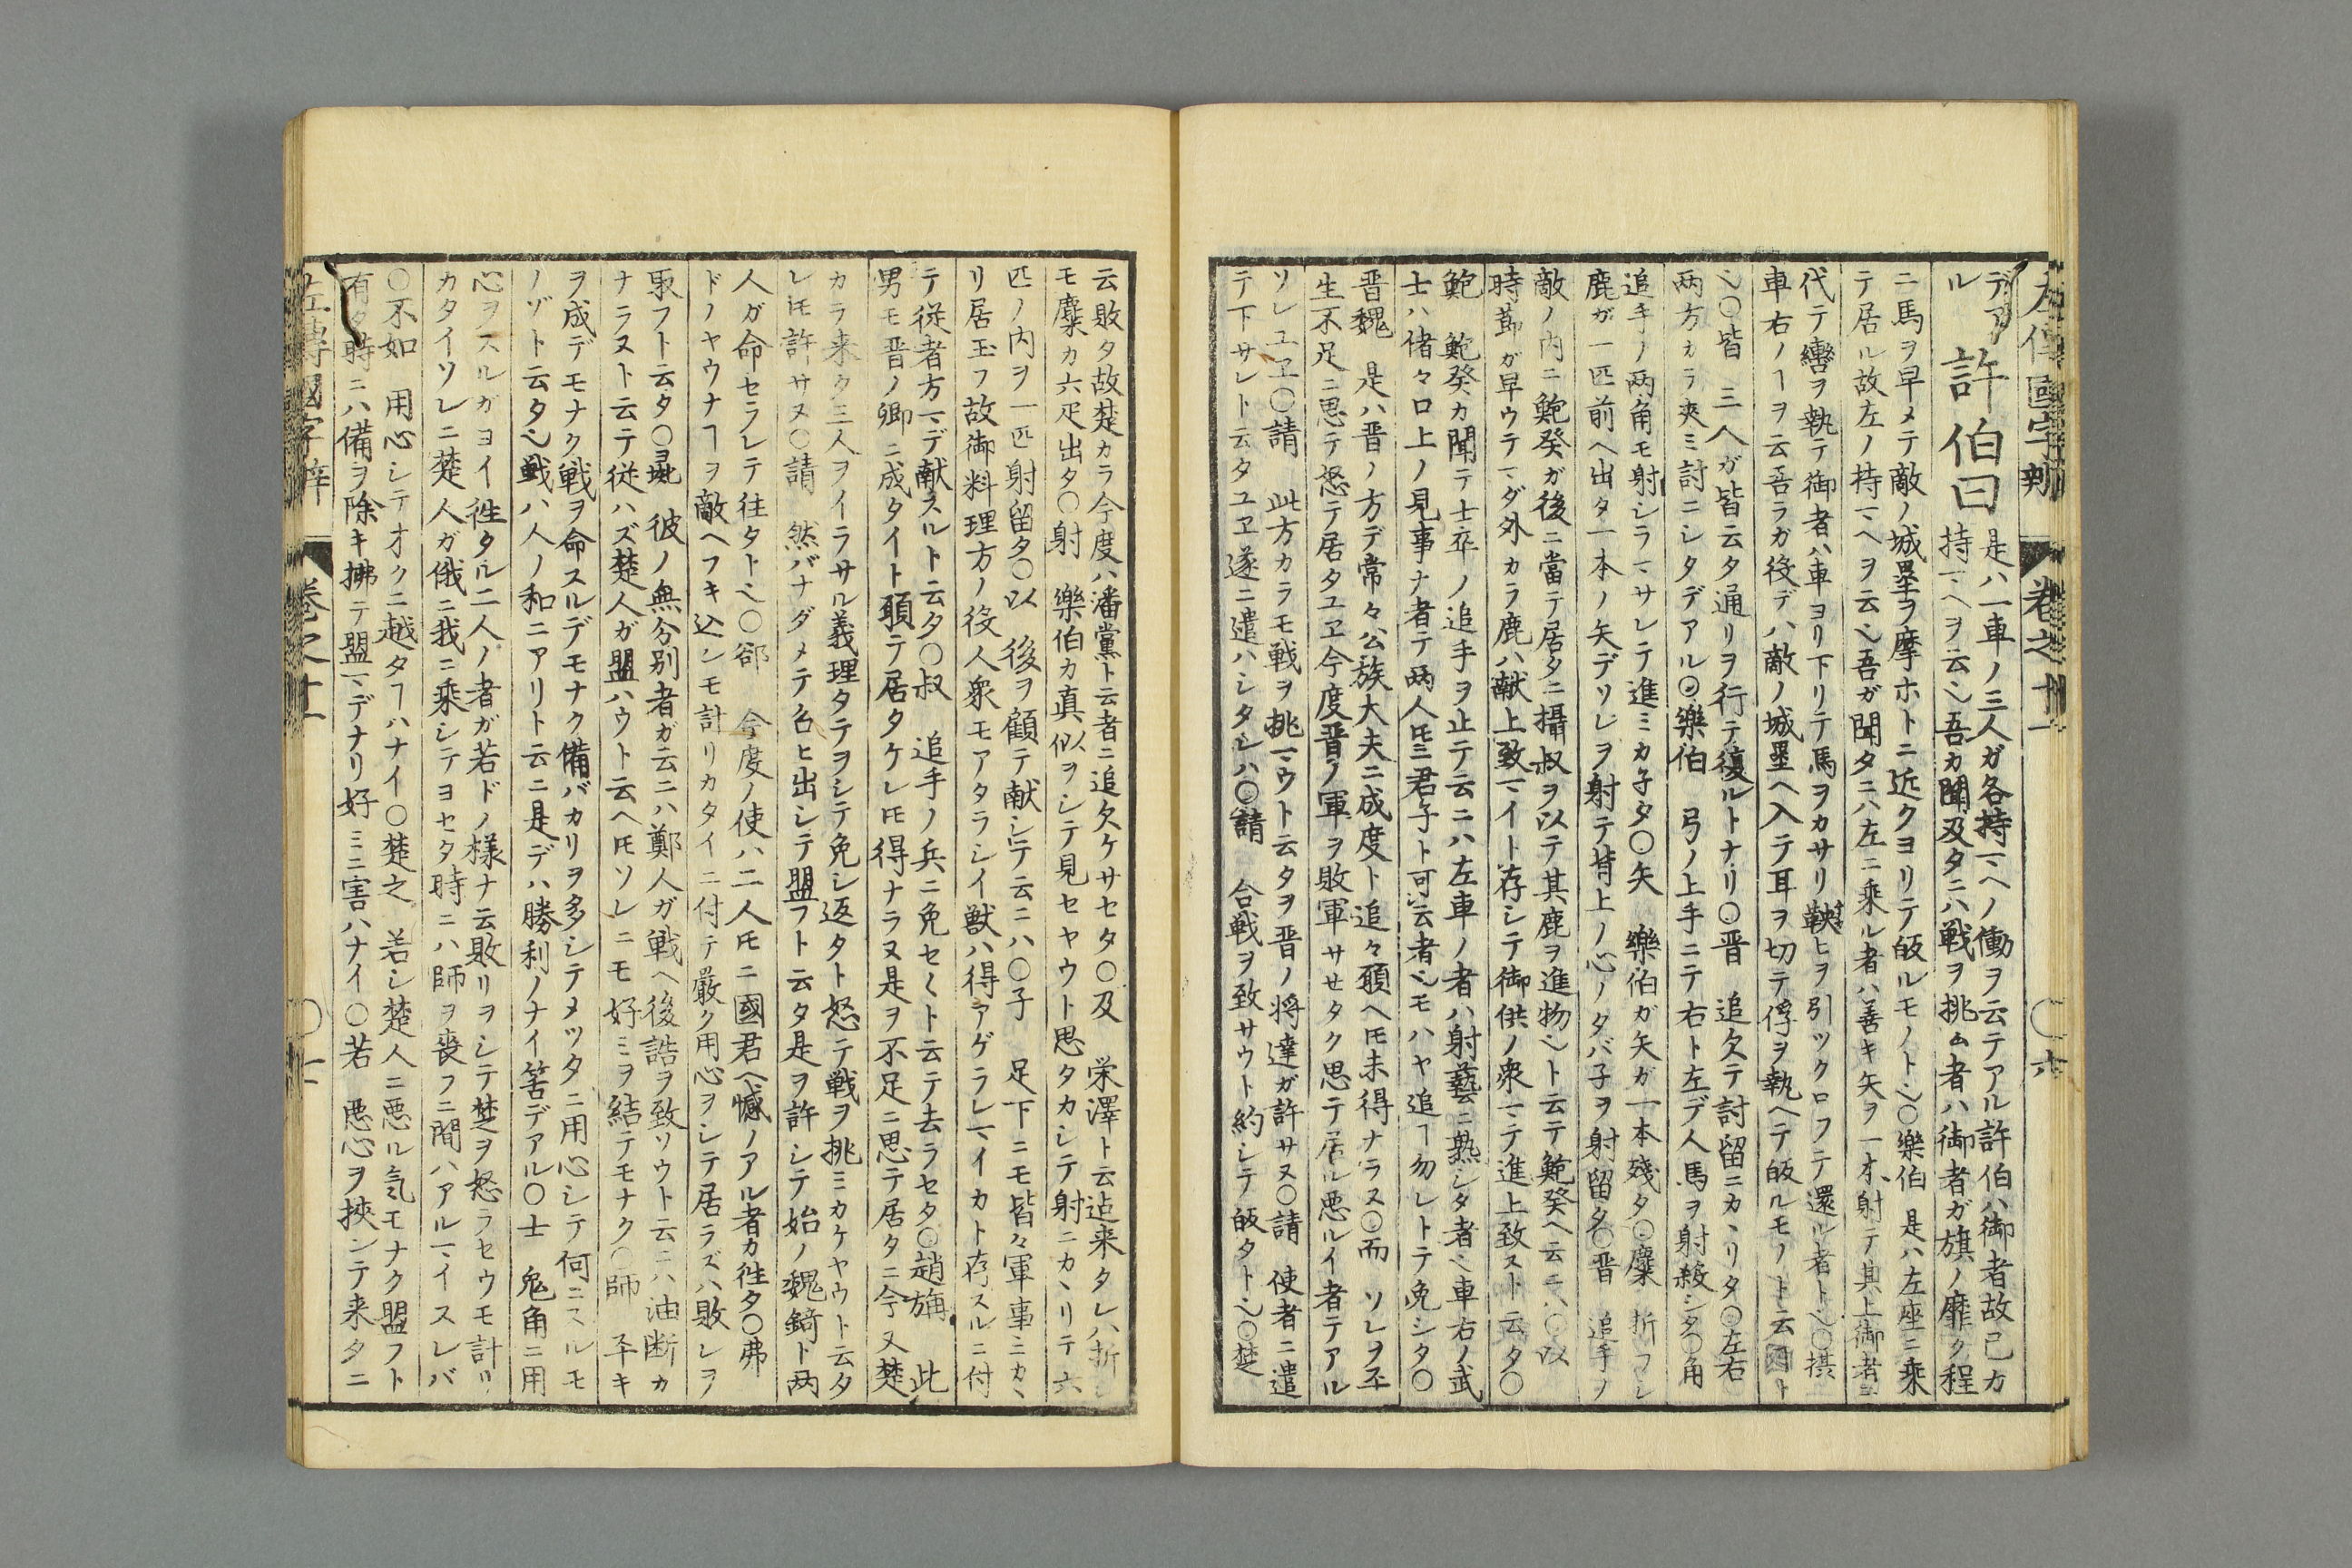 左傳國字辨 卷之十一 〇六
デア
ル
許伯曰
是ハ一車ノ三人ガ各持マヘノ働ヲ云テアル許伯ハ御者故己カ
持マヘヲ云ヘ吾カ聞及タニハ戰ヲ挑ム者ハ御者ガ旗ノ靡ク程
ニ馬ヲ早メテ敵ノ城壘ヲ摩ホトニ近クヨリテ皈ルモノトヘ〇樂伯 是ハ左座ニ乘
テ居ル故左ノ持マヘヲ云ヘ吾ガ聞タニハ左ニ乘ル者ハ善キ矢ヲ一本射テ其上御者ニ
代テ轡ヲ執テ御者ハ車ヨリ下リテ馬ヲカサリ鞅ヒヲ引ツクロフテ還ル者トヘ〇攝
車右ノヿヲ云吾ラガ役デハ敵ノ城壘ヘ入テ耳ヲ切テ俘ヲ執ヘテ皈ルモノト云
ヘ〇皆 三人ガ皆云タ通リヲ行テ復ルトナリ〇晋 追欠テ討留ニカヽリタ〇左右
両方カラ夾ミ討ニシタデアル〇樂伯 弓ノ上手ニテ右ト左デ人馬ヲ射殺シタ〇角
追手ノ両角モ射シラマサレテ進ミカ子タ〇矢 樂伯ガ矢ガ一本殘タ〇麋 折フシ
鹿ガ一匹前ヘ出タ一本ノ矢デソレヲ射テ背上ノ心ノタバ子ヲ射留タ〇晋 追手ノ
敵ノ内ニ鮑癸ガ後ニ當テ居タニ攝叔ヲ以テ其鹿ヲ進物ヘト云テ鮑癸ヘ云ニハ〇以
時節ガ早ウテマダ外カラ鹿ハ献上致マイト存シテ御供ノ衆マテ進上致スト云タ〇
鮑 鮑癸カ聞テ士卒ノ追手ヲ止テ云ニハ左車ノ者ハ射藝ニ熟シタ者ヘ車右ノ武
士ハ偖々口上ノ見事ナ者テ両人𪜈ニ君子ト可云者ヘモハヤ追ヿ勿レトテ免シタ〇
晋魏 是ハ晋ノ方デ常々公族大夫ニ成度ト追々願ヘ𪜈未得ナラヌ〇而 ソレヲ平
生不足ニ思テ怒テ居タユヱ今度晋ノ軍ヲ敗軍サセタク思テ居ル悪ルイ者テアル
ソレユヱ〇請 此方カラモ戰ヲ挑マウト云タヲ晋ノ将達ガ許サヌ〇請 使者ニ遣
テ下サレト云タユヱ遂ニ遣ハシタレハ〇請 合戰ヲ致サウト約シテ皈タトヘ〇楚
云敗タ故楚カラ今度ハ潘黨ト云者ニ追欠ケサセタ〇及 栄澤ト云迠来タレハ折シ
モ麋カ六疋出タ〇射 樂伯カ真似ヲシテ見セヤウト思タカシテ射ニカヽリテ六
匹ノ内ヲ一匹射留タ〇以 後ヲ顧テ献シテ云ニハ〇子 足下ニモ皆々軍事ニカヽ
リ居玉フ故御料理方ノ役人衆モアタラシイ獣ハ得アゲラレマイカト存スルニ付
テ従者方マデ献スルト云タ〇叔 追手ノ兵ニ免セ〱ト云テ去ラセタ〇趙旃 此
男モ晋ノ卿ニ成タイト願テ居タケレ𪜈得ナラヌ是ヲ不足ニ思テ居タニ今又楚
カラ来タ三人ヲイラサル義理タテヲシテ免シ返タト怒テ戰ヲ挑ミカケヤウト云タ
レ𪜈許サヌ〇請 然バナダメテ名ヒ出シテ盟フト云タ是ヲ許シテ始ノ魏錡ト両
人ガ命セラレテ往タトヘ〇郤 今度ノ使ハ二人𪜈ニ國君ヘ憾ノアル者カ往タ〇弗
ドノヤウナヿヲ敵ヘフキ込ンモ計リカタイニ付テ嚴ク用心ヲシテ居ラズハ敗レヲ
取フト云タ〇彘 彼ノ無分別者ガ云ニハ鄭人ガ戰ヘ後詰ヲ致ソウト云ニハ油断カ
ナラヌト云テ従ハズ楚人ガ盟ハウト云ヘ𪜈ソレニモ好ミヲ結テモナク〇師 平キ
ヲ成デモナク戰ヲ命スルデモナク備バカリヲ多シテメツタニ用心シテ何ニスルモ
ノゾト云タヘ戰ハ人ノ和ニアリト云ニ是デハ勝利ノナイ筈デアル〇士 鬼角ニ用
心ヲスルガヨイ往タル二人ノ者ガ若ドノ様ナ云敗リヲシテ楚ヲ怒ラセウモ計リ
カタイソレニ楚人ガ俄ニ我ニ乘シテヨセタ時ニハ師ヲ喪フニ間ハアルマイスレバ
〇不如 用心シテオクニ越タヿハナイ〇楚之 若シ楚人ニ悪ル気モナク盟フト
有タ時ニハ備ヲ除キ拂テ盟マデナリ好ミニ害ハナイ〇若 悪心ヲ挾ンテ来タニ
左傳國字辨 卷之十一